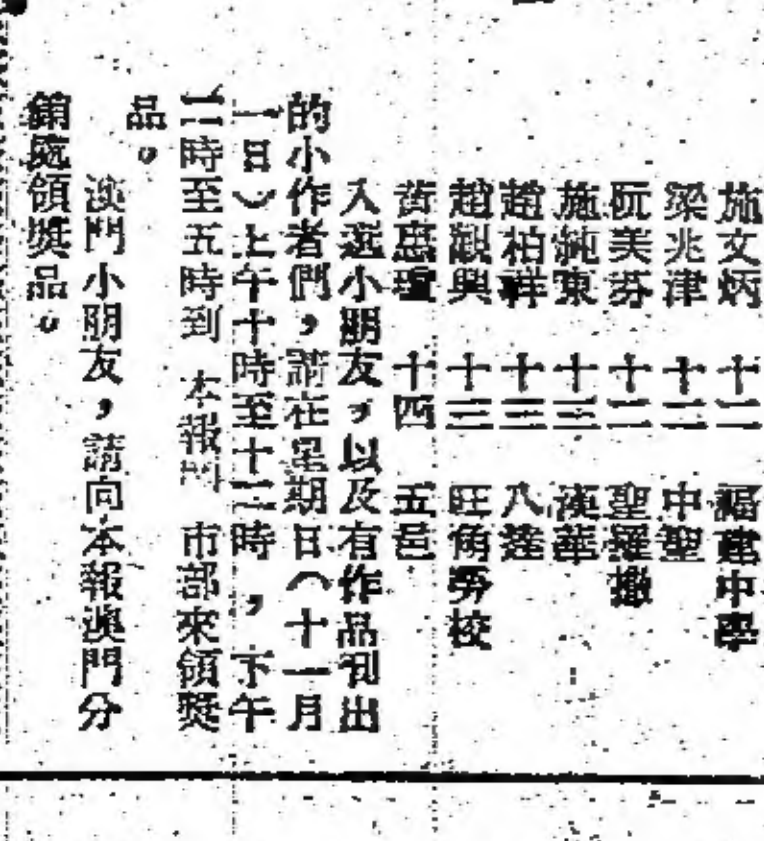 施文炳 十二 福建中學
梁兆津 十二 中聖
阮美芬 十二 聖羅撒
施純東 十三 漢華
趙柏祥 十三 八達
趙觀興 十三 旺角勞校
黃惠瓊 十四 五邑
入選小朋友,以及有作品刊出
的小作者們,請在星期日(十一月
一日)上午十時至十二時,下午
二時至五時到 本報門 市部來領獎
品。
澳門小朋友,請向本報澳門分
銷處領獎品。